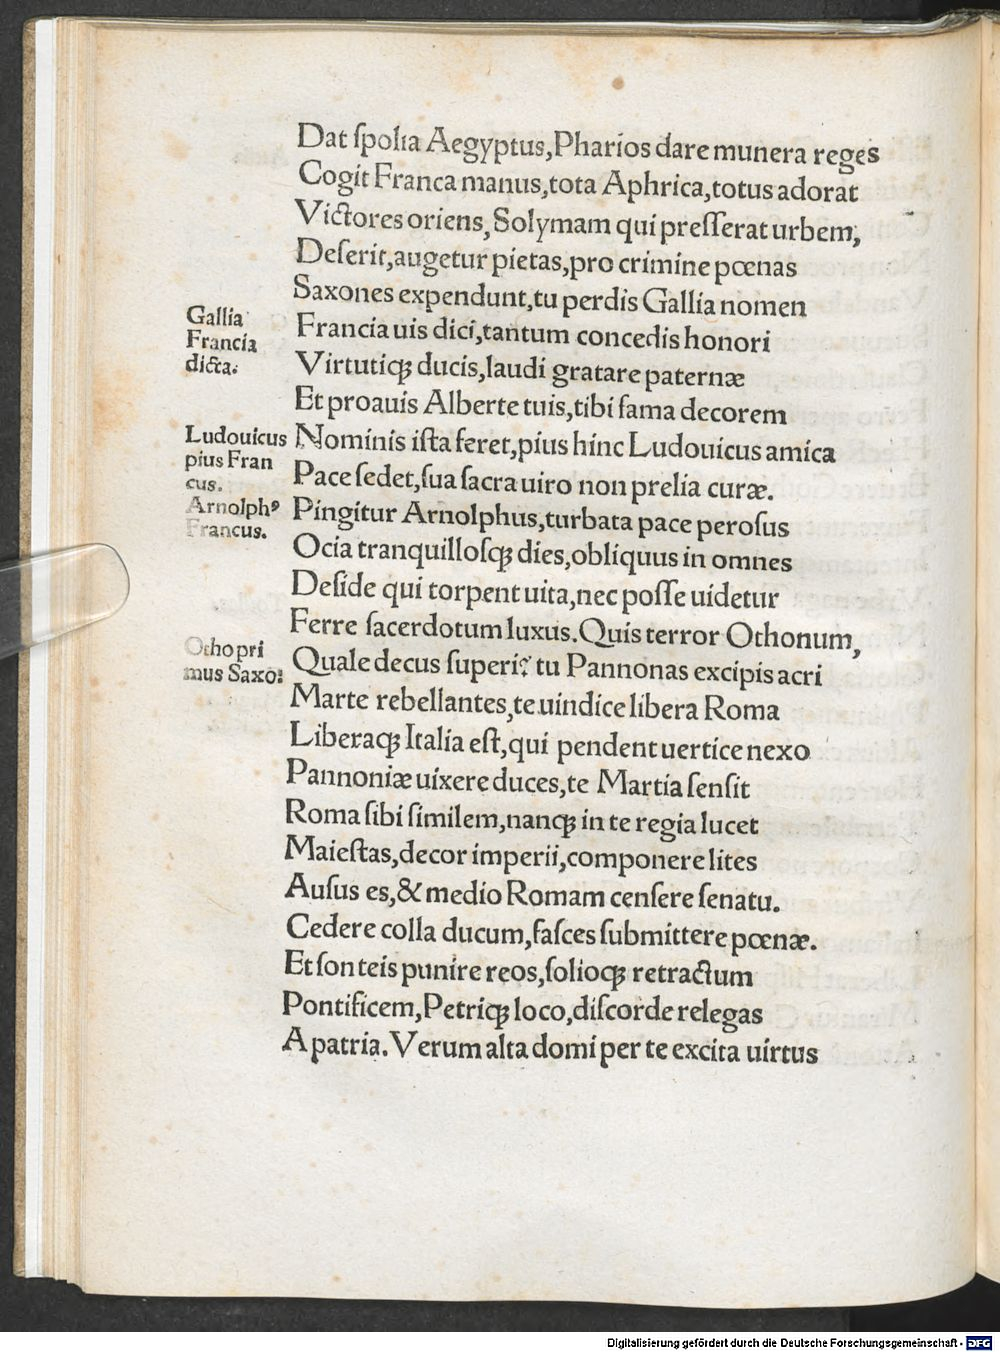 Dat ſpolia Aegyptus,Pharios dare munera reges
Cogit Franca manus,tota Aphrica,totus adorat
Victores oriens, Solymam qui preſſerat urbem,
Deſerit,augetur pietas,pro crimine pœnas
Saxones expendunt,tu perdis Gallia nomen
Gallia
Francia
dicta.
Francia uis dici,tantum concedis honori
Virtutiqꝫ ducis,laudi gratare paternæ
Et proauis Alberte tuis,tibi fama decorem
Ludouicus
pius Fran
cus.
Nominis iſta feret,pius hinc Ludouicus amica
Pace ſedet,ſua ſacra uiro non prelia curæ.
Arnolphꝰ
Francus.
Pingitur Arnolphus,turbata pace peroſus
Ocia tranquilloſqꝫ dies,obliquus in omnes
Deſide qui torpent uita,nec poſſe uidetur
Ferre ſacerdotum luxus. Quis terror Othonum,
Otho pri
mus Saxo:
Quale decus ſuperi? tu Pannonas excipis acri
Marte rebellantes,te uindice libera Roma
Liberaqꝫ Italia eſt,qui pendent uertice nexo
Pannoniæ uixere duces,te Martia ſenſit
Roma ſibi ſimilem,nanqꝫ in te regia lucet
Maieſtas,decor imperii,componere lites
Auſus es,& medio Romam cenſere ſenatu.
Cedere colla ducum,faſces ſubmittere pœnæ.
Et ſonteis punire reos,ſolioqꝫ retractum
Pontificem,Petriqꝫ loco,diſcorde relegas
A patria. Verum alta domi per te excita uirtus
Digitalisierung gefördert durch die Deutsche Forschungsgemeinschaft - DFG